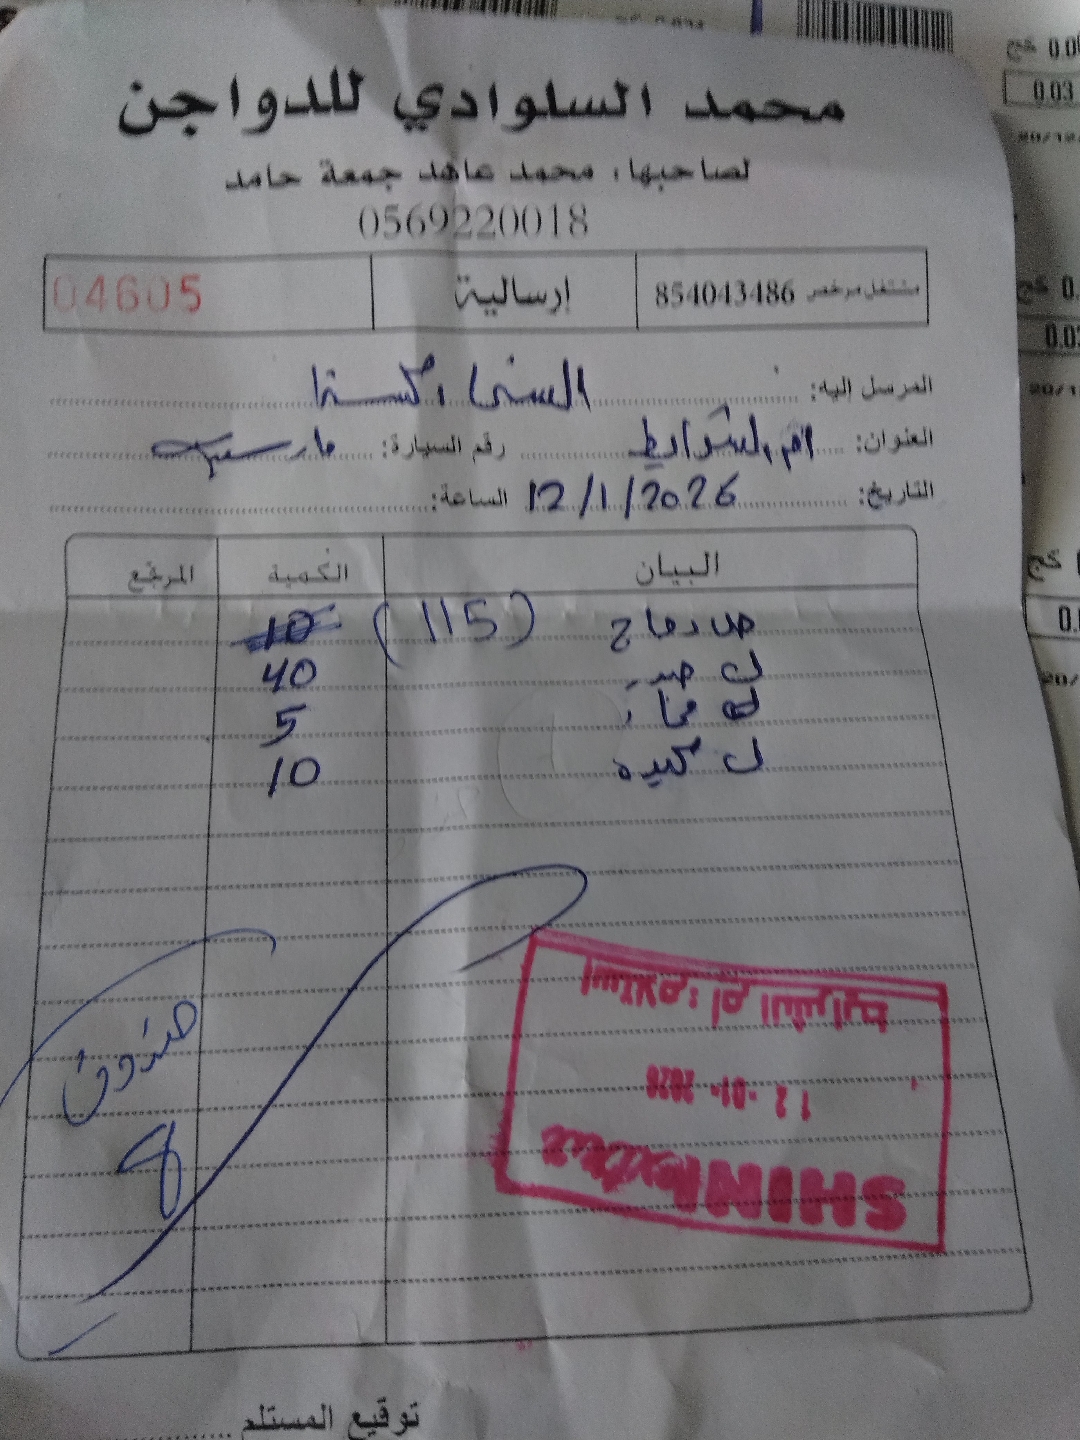 محمد السلوادي للدواجن
لصاحبها: محمد عاهد جمعة حامد
0569220018
مشتغل مرخص 854043486 إرسالية 04605
المرسل إليه: السنما اكسترا
العنوان: ام الشرايط رقم السيارة:
التاريخ: 12/1/2026 الساعة:
البيان الكمية المرتجع
(115) 10
ك صدر 40
5
ك كبده 10
صندوق
8
SHINI Extra
12 -01- 2026
توقيع المستلم
0.03
0.03